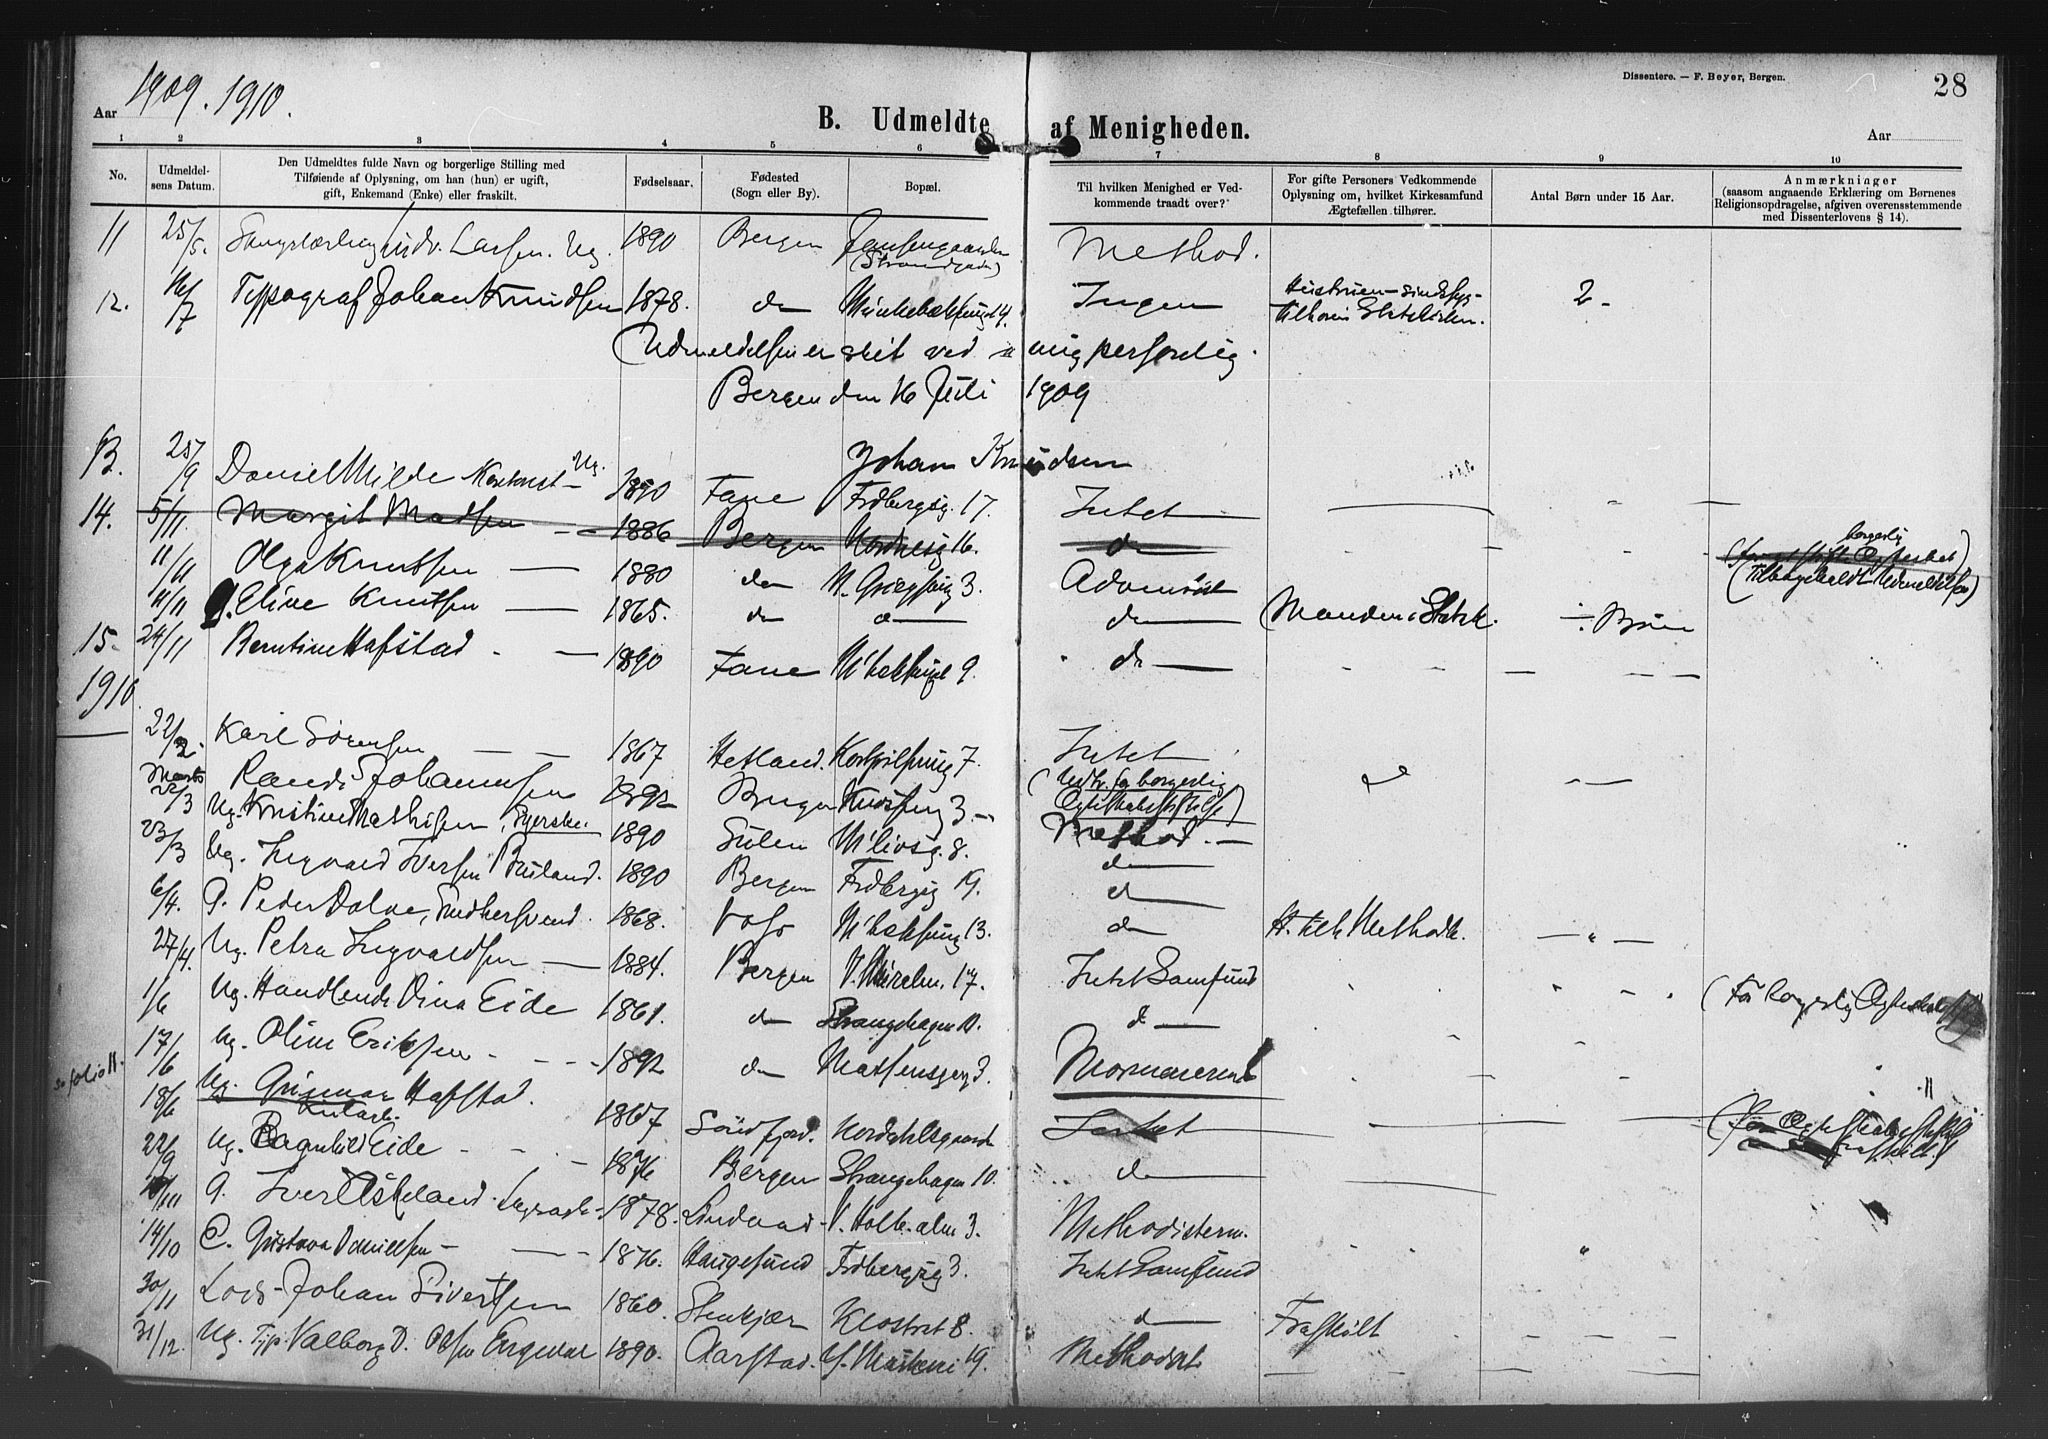 Dissentere. — F. Beyer, Bergen.
28
Aar 1909. 1910.
B. Udmeldte af Menigheden.
Aar
1 2 3 4 5 6 7 8 9 10
No.
Udmeldelsens Datum.
Den Udmeldtes fulde Navn og borgerlige Stilling med
Tilføiende af Oplysning, om han (hun) er ugift,
gift, Enkemand (Enke) eller fraskilt.
Fødselsaar.
Fødested
(Sogn eller By).
Bopæl.
Til hvilken Menighed er Ved-
kommende traadt over?
For gifte Personers Vedkommende
Oplysning om, hvilket Kirkesamfund
Ægtefællen tilhører.
Antal Børn under 15 Aar.
Anmærkninger
(saasom angaaende Erklæring om Børnenes
Religionsopdragelse, afgiven overensstemmende
med Dissenterlovens § 14).
11 25/5. Larsen. Ug. 1890 Bergen Jansengaarden (Strandgaden) Method.
12. 16/7 Typograf Johan Knudsen 1878. do 14. Ingen Hustruen 2 -
tilhører Statskirken.
(Udmeldelsen er skét ved mig personlig.
Bergen den 16 Juli 1909
Johan Knudsen
13. 25/9 Daniel Milde Kontorist - Ug. 1890 Fane Fodbergsg. 17. Intet
14. 5/11. Margit Madsen 1886 Bergen 16. do borgerlig
11/11 Olga Knutsen 1880 do 3. Adventist (Tilbagekaldt Udmeldelsen)
11/11 g. Eline Knutsen 1865. do do do (Manden i Statsk. Børn
15. 24/11 Berntine Hafstad 1890 Fane 9. do
1910
22/2. Karl Sørensen 1867 Hetland. 7. Intet
Marts 22/3 Randi Johannessen 1892 Bergen 3. (Udtr. for borgerlig
Ægteskabsstiftelse)
Ug. Kristine Mathisen, Syerske. 1890 Sulen 8. Method.
23/3 Ug. Ingvald Iversen 1890 Bergen Fodbergsg 19. do
6/4. g. Peder Dolve, Snedkersvend 1868. Voss 13. do H. tilh Methodk.
27/4. Ug. Petra Ingvaldsen 1884. Bergen 17. Intet Samfund
1/6 Ug. Handlende Dina Eide 1861. do Strangehagen 10. do (For borgerlig Ægteskab
17/6 Ug. Oline Eriksen 1892 do 3. Mormonerne
se folio 11. 18/6 Ug. Gunnar Hafstad. 1867 Søndfjord. Nordahlsgaarden Intet
22/9 Ug. Ragnhild Eide 1876 Bergen Strangehagen 10. do
g. Iver 1878. V. Holb. alm 3. Methodisterne.
14/10 E. Gustava Danielsen 1876. Haugesund Fodbergsg 3. Intet Samfund
30/11 Lods- Johan Sivertsen 1860. Stenkjær Klostret 8. do Fraskilt
31/12. Ug. Typ. Valborg D. Olsen Engedal 1890. Aarstad. 19. Methodist.